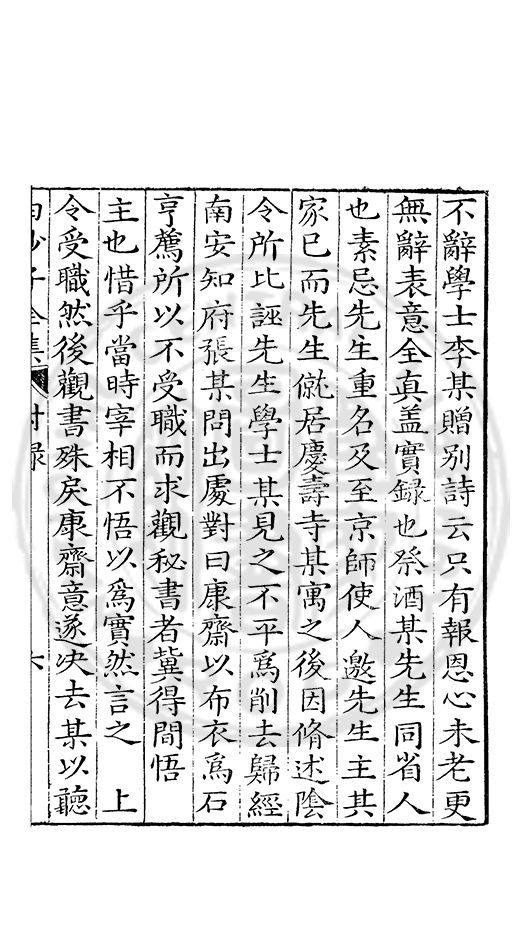 不辭學士李某贈别詩云只有報恩心未老更
無辭表意全真盖實録也祭酒某先生同省人
也素忌先生重名及至京師使人邀先生主其
家已而先生僦居慶壽寺某寓之後因脩述陰
令所比誣先生學士某見之不平爲削去歸經
南安知府張某問出處對曰康齋以布衣爲石
亨薦所以不受職而求觀秘書者冀得間悟
主也惜乎當時宰相不悟以爲實然言之　上
令受職然後觀書殊戾康齋意遂决去某以聽
白沙子全集　附録　六